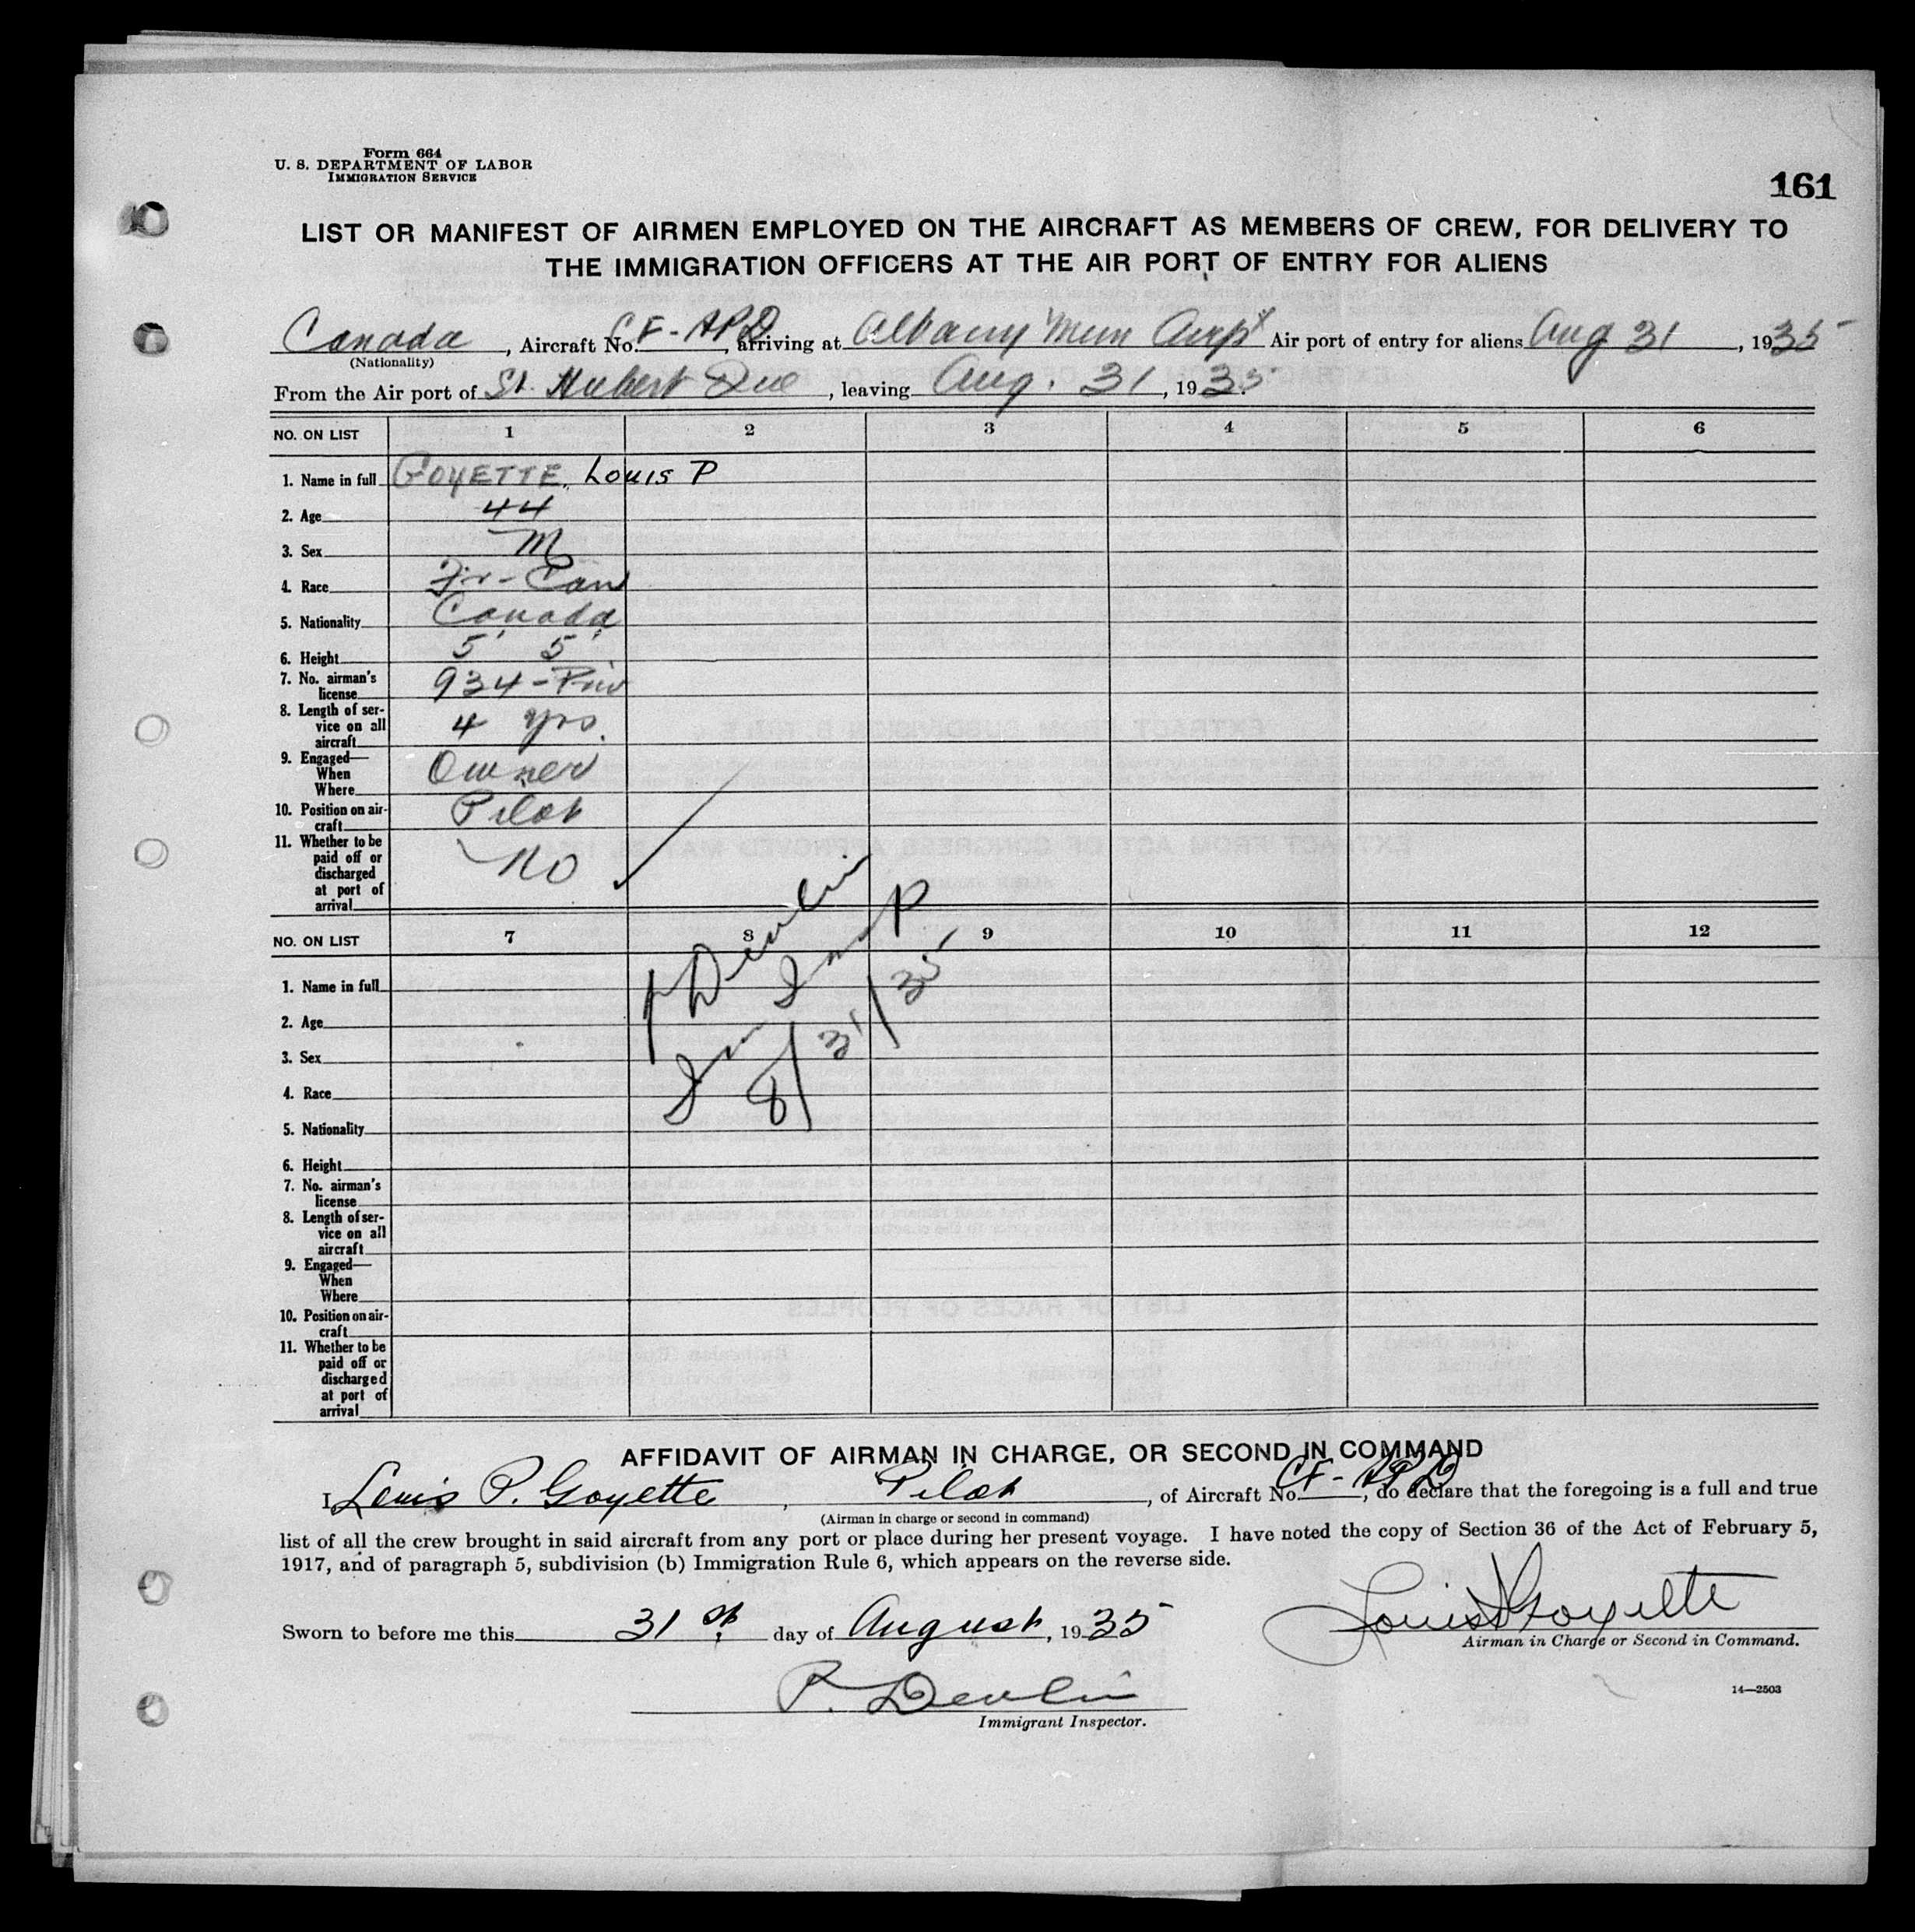 Form 664
U. S. DEPARTMENT OF LABOR
IMMIGRATION SERVICE
161
LIST OR MANIFEST OF AIRMEN EMPLOYED ON THE AIRCRAFT AS MEMBERS OF CREW, FOR DELIVERY TO
THE IMMIGRATION OFFICERS AT THE AIR PORT OF ENTRY FOR ALIENS
Canada, Aircraft No. CF-APD, arriving at Albany Mun Airpt Air port of entry for aliens Aug 31, 1935
(Nationality)
From the Air port of St. Hubert Que, leaving Aug. 31, 1935.
NO. ON LIST 1 2 3 4 5 6
1. Name in full GOYETTE, Louis P
2. Age 44
3. Sex M
4. Race Fr-Can
5. Nationality Canada
6. Height 5' 5"
7. No. airman's
license 934-Priv
8. Length of ser-
vice on all
aircraft 4 yrs.
9. Engaged—
When
Where Owner
10. Position on air-
craft Pilot
11. Whether to be
paid off or
discharged
at port of
arrival No
P Devlin
Imm Insp
8/31/35
NO. ON LIST 7 8 9 10 11 12
1. Name in full
2. Age
3. Sex
4. Race
5. Nationality
6. Height
7. No. airman's
license
8. Length of ser-
vice on all
aircraft
9. Engaged—
When
Where
10. Position on air-
craft
11. Whether to be
paid off or
discharged
at port of
arrival
AFFIDAVIT OF AIRMAN IN CHARGE, OR SECOND IN COMMAND
I, Louis P. Goyette, Pilot, of Aircraft No. CF-APD, do declare that the foregoing is a full and true
(Airman in charge or second in command)
list of all the crew brought in said aircraft from any port or place during her present voyage. I have noted the copy of Section 36 of the Act of February 5,
1917, and of paragraph 5, subdivision (b) Immigration Rule 6, which appears on the reverse side.
Sworn to before me this 31st day of August, 1935
Louis P Goyette
Airman in Charge or Second in Command.
P. Devlin
Immigrant Inspector.
14—2503